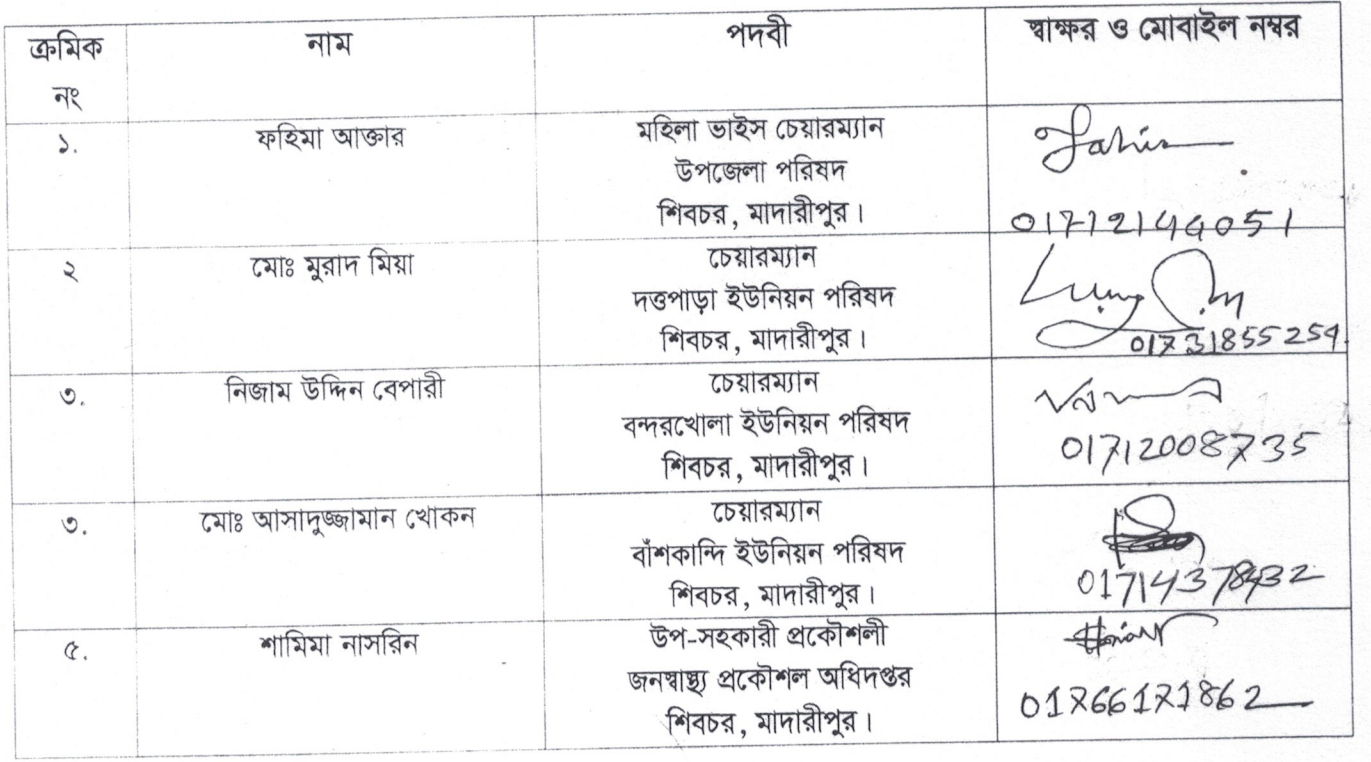 ক্রমিক নং নাম পদবী স্বাক্ষর ও মোবাইল নম্বর
১. ফহিমা আক্তার মহিলা ভাইস চেয়ারম্যান
উপজেলা পরিষদ
শিবচর, মাদারীপুর।
01712144051
২ মোঃ মুরাদ মিয়া চেয়ারম্যান
দত্তপাড়া ইউনিয়ন পরিষদ
শিবচর, মাদারীপুর।
01731855259
৩. নিজাম উদ্দিন বেপারী চেয়ারম্যান
বন্দরখোলা ইউনিয়ন পরিষদ
শিবচর, মাদারীপুর।
01712008735
৩. মোঃ আসাদুজ্জামান খোকন চেয়ারম্যান
বাঁশকান্দি ইউনিয়ন পরিষদ
শিবচর, মাদারীপুর।
01714378432
৫. শামিমা নাসরিন উপ-সহকারী প্রকৌশলী
জনস্বাস্থ্য প্রকৌশল অধিদপ্তর
শিবচর, মাদারীপুর।
01766171862